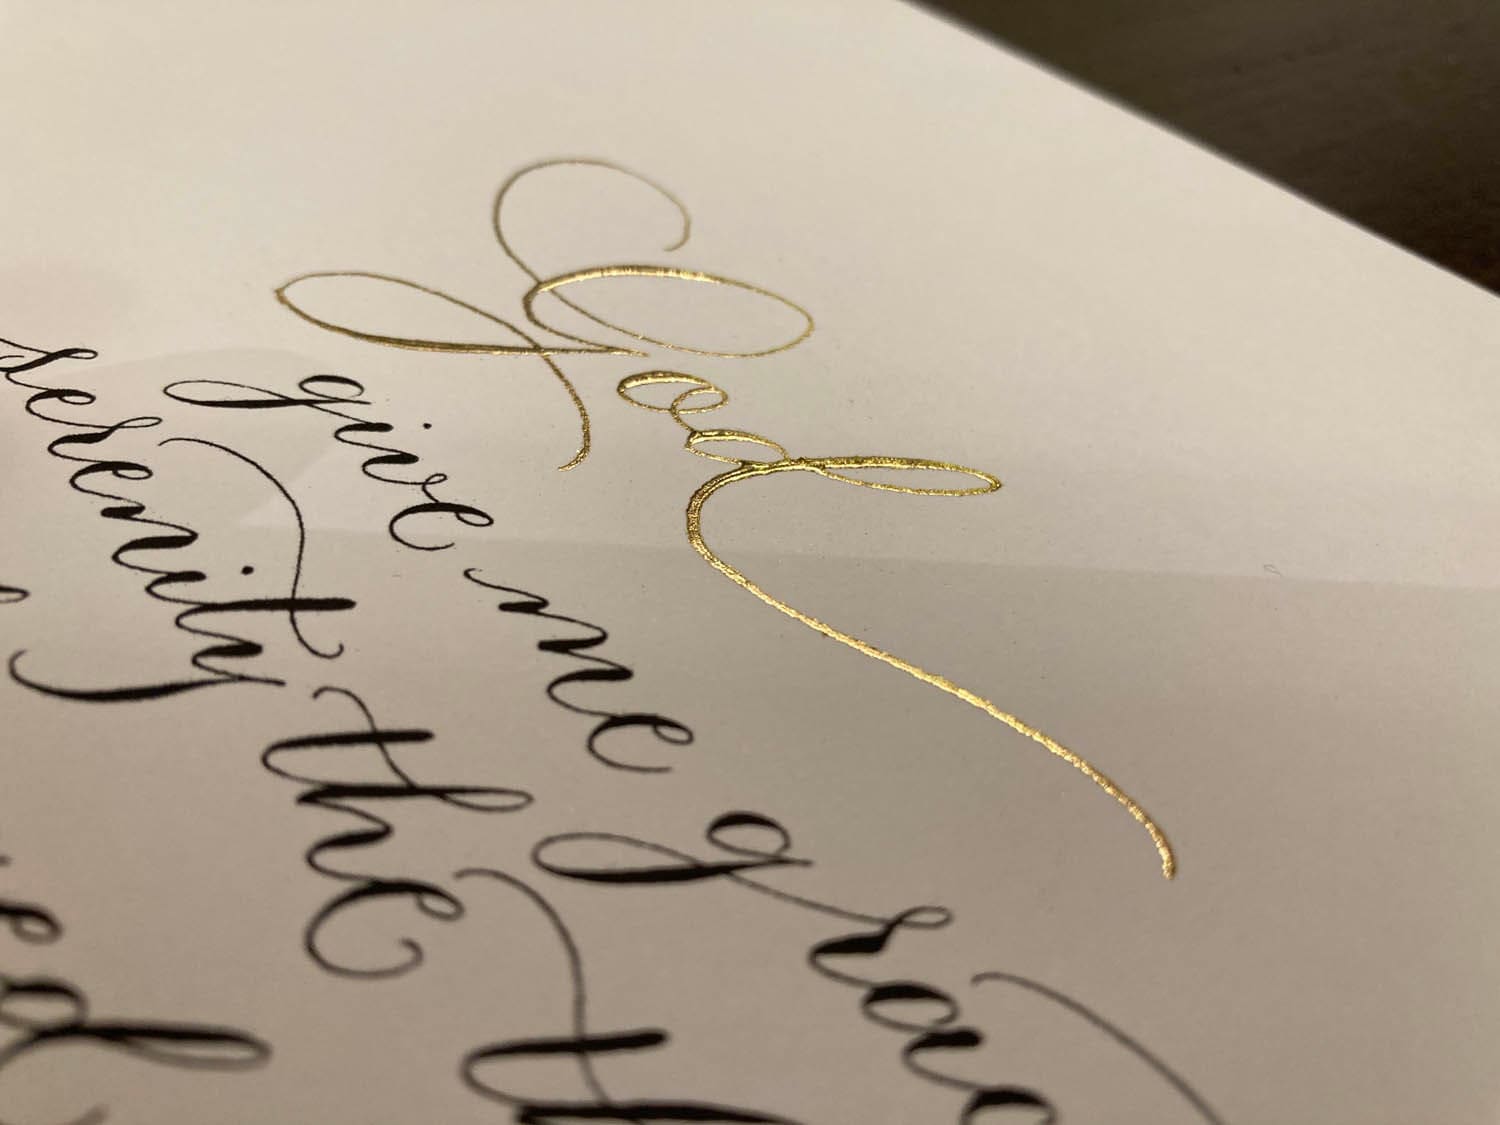 God
give me grac
serenity the th